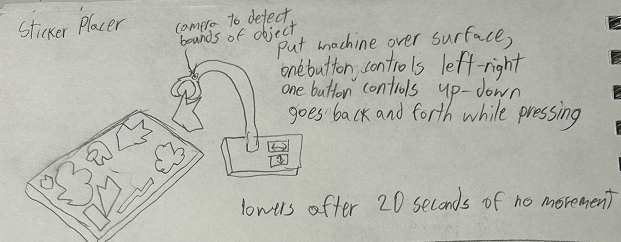 Sticker Placer
camera to detect
bounds of object
put machine over surface,
one button controls left-right
one button controls up-down
goes back and forth while pressing
lowers after 20 seconds of no movement